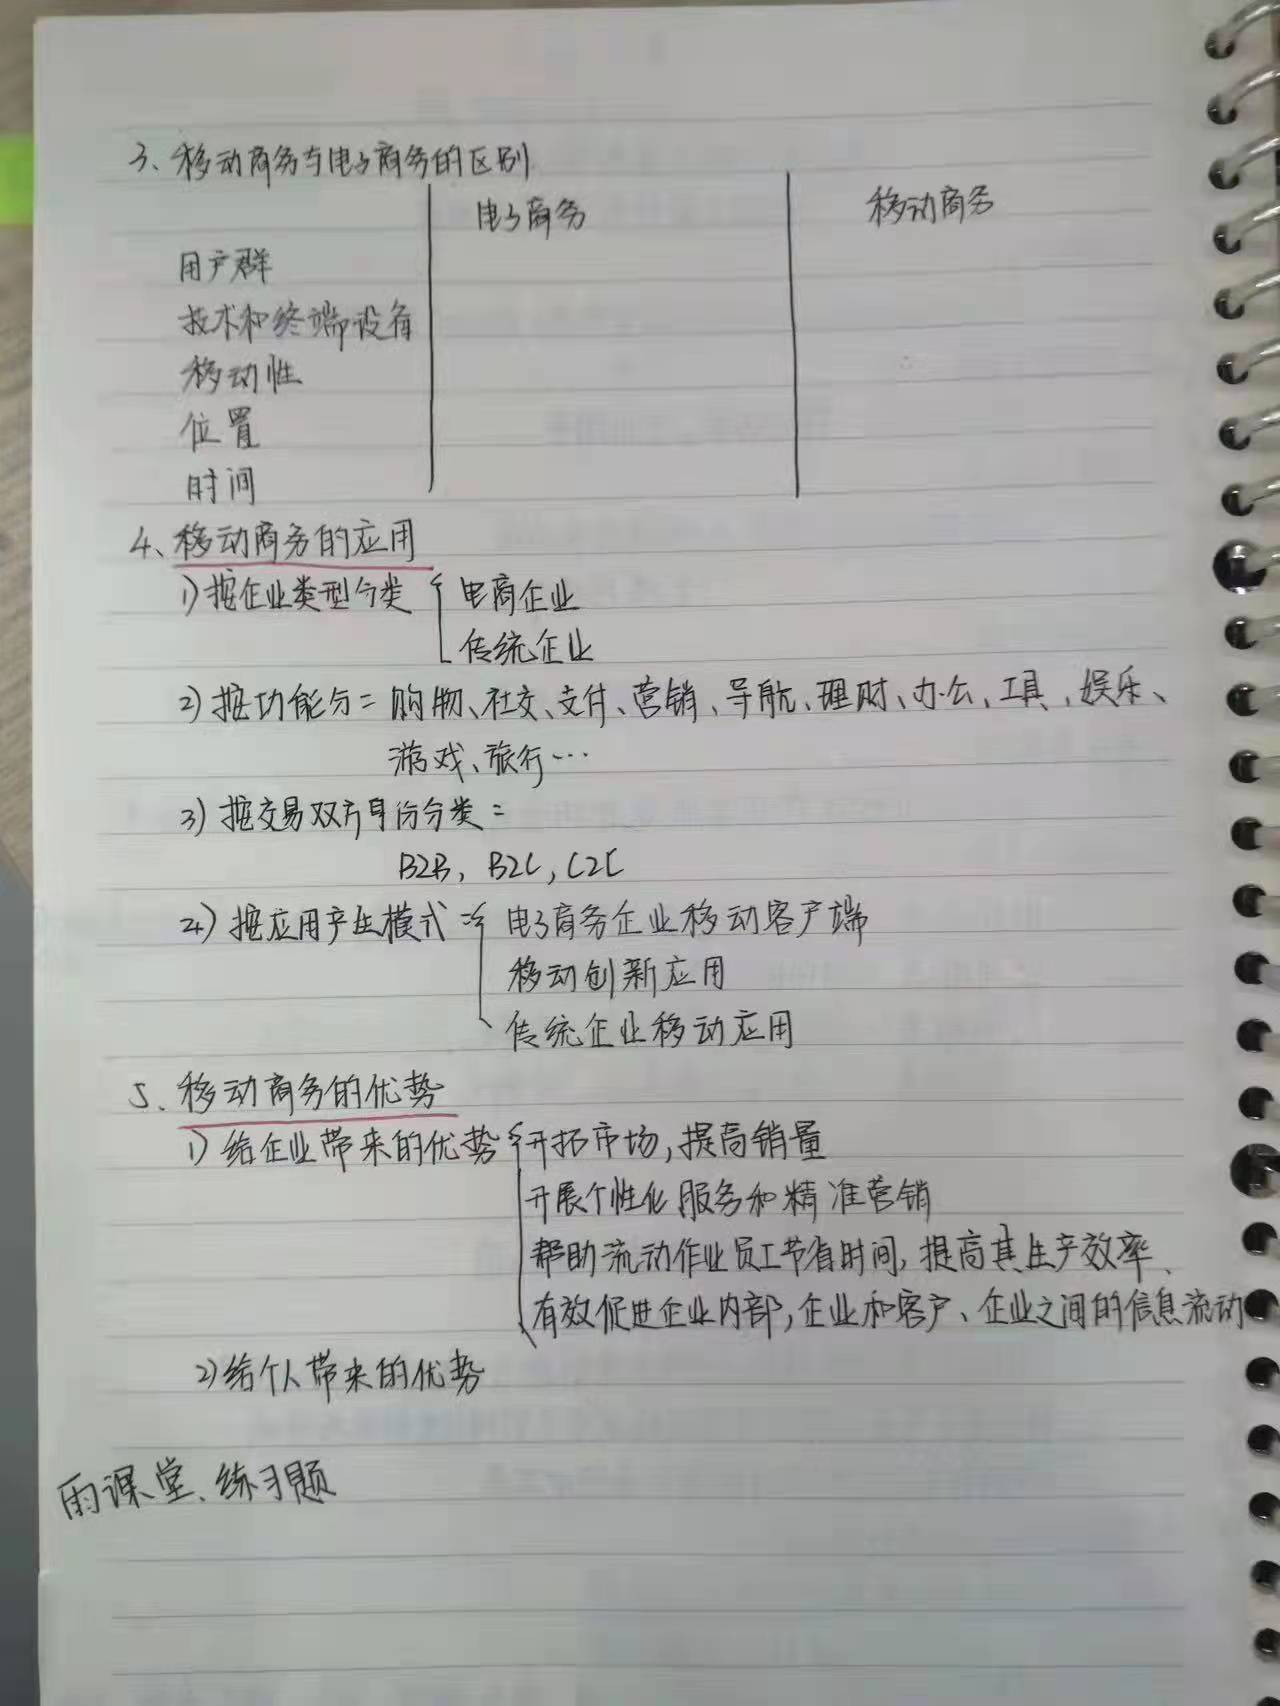 3、移动商务与电子商务的区别
电子商务 移动商务
用户群
技术和终端设备
移动性
位置
时间
4、移动商务的应用
1)按企业类型分类{电商企业
传统企业
2)按功能分=购物、社交、支付、营销、导航、理财、办公、工具、娱乐、
游戏、旅行…
3)按交易双方身份分类=
B2B,B2C,C2C
4)按应用产生模式={电子商务企业移动客户端
移动创新应用
传统企业移动应用
5、移动商务的优势
1)给企业带来的优势{开拓市场,提高销量
开展个性化服务和精准营销
帮助流动作业员工节省时间,提高其生产效率、
有效促进企业内部,企业和客户、企业之间的信息流动
2)给个人带来的优势
雨课堂、练习题